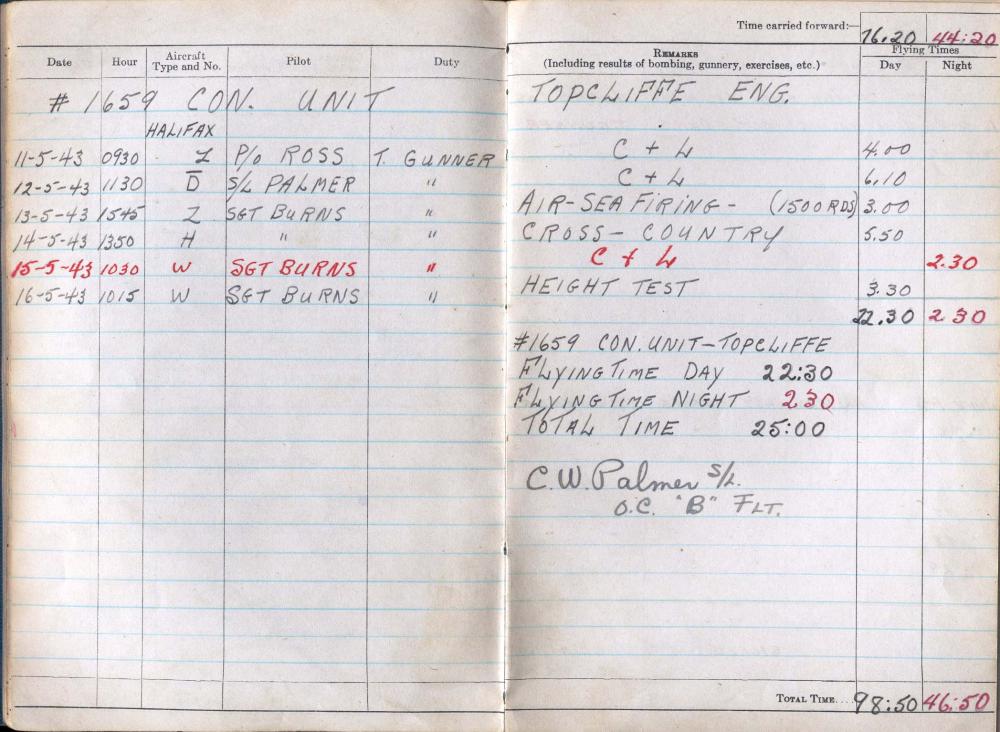 Time carried forward:— 76.20 44:20
Date Hour Aircraft Type and No. Pilot Duty REMARKS (Including results of bombing, gunnery, exercises, etc.) Flying Times Day Night
# 1659 CON. UNIT TOPCLIFFE ENG.
HALIFAX
11-5-43 0930 Z P/O ROSS T. GUNNER C + L 4.00
12-5-43 1130 D S/L PALMER " C + L 6.10
13-5-43 1545 Z SGT BURNS " AIR-SEA FIRING- (1500 RDS) 3.00
14-5-43 1350 H " " CROSS-COUNTRY 5.50
15-5-43 1030 W SGT BURNS " C + L 2.30
16-5-43 1015 W SGT BURNS " HEIGHT TEST 3.30
22.30 2 30
#1659 CON. UNIT-TOPCLIFFE
FLYING TIME DAY 22:30
FLYING TIME NIGHT 2 30
TOTAL TIME 25:00
C.W. Palmer S/L.
O.C. "B" FLT.
TOTAL TIME.... 98:50 46:50